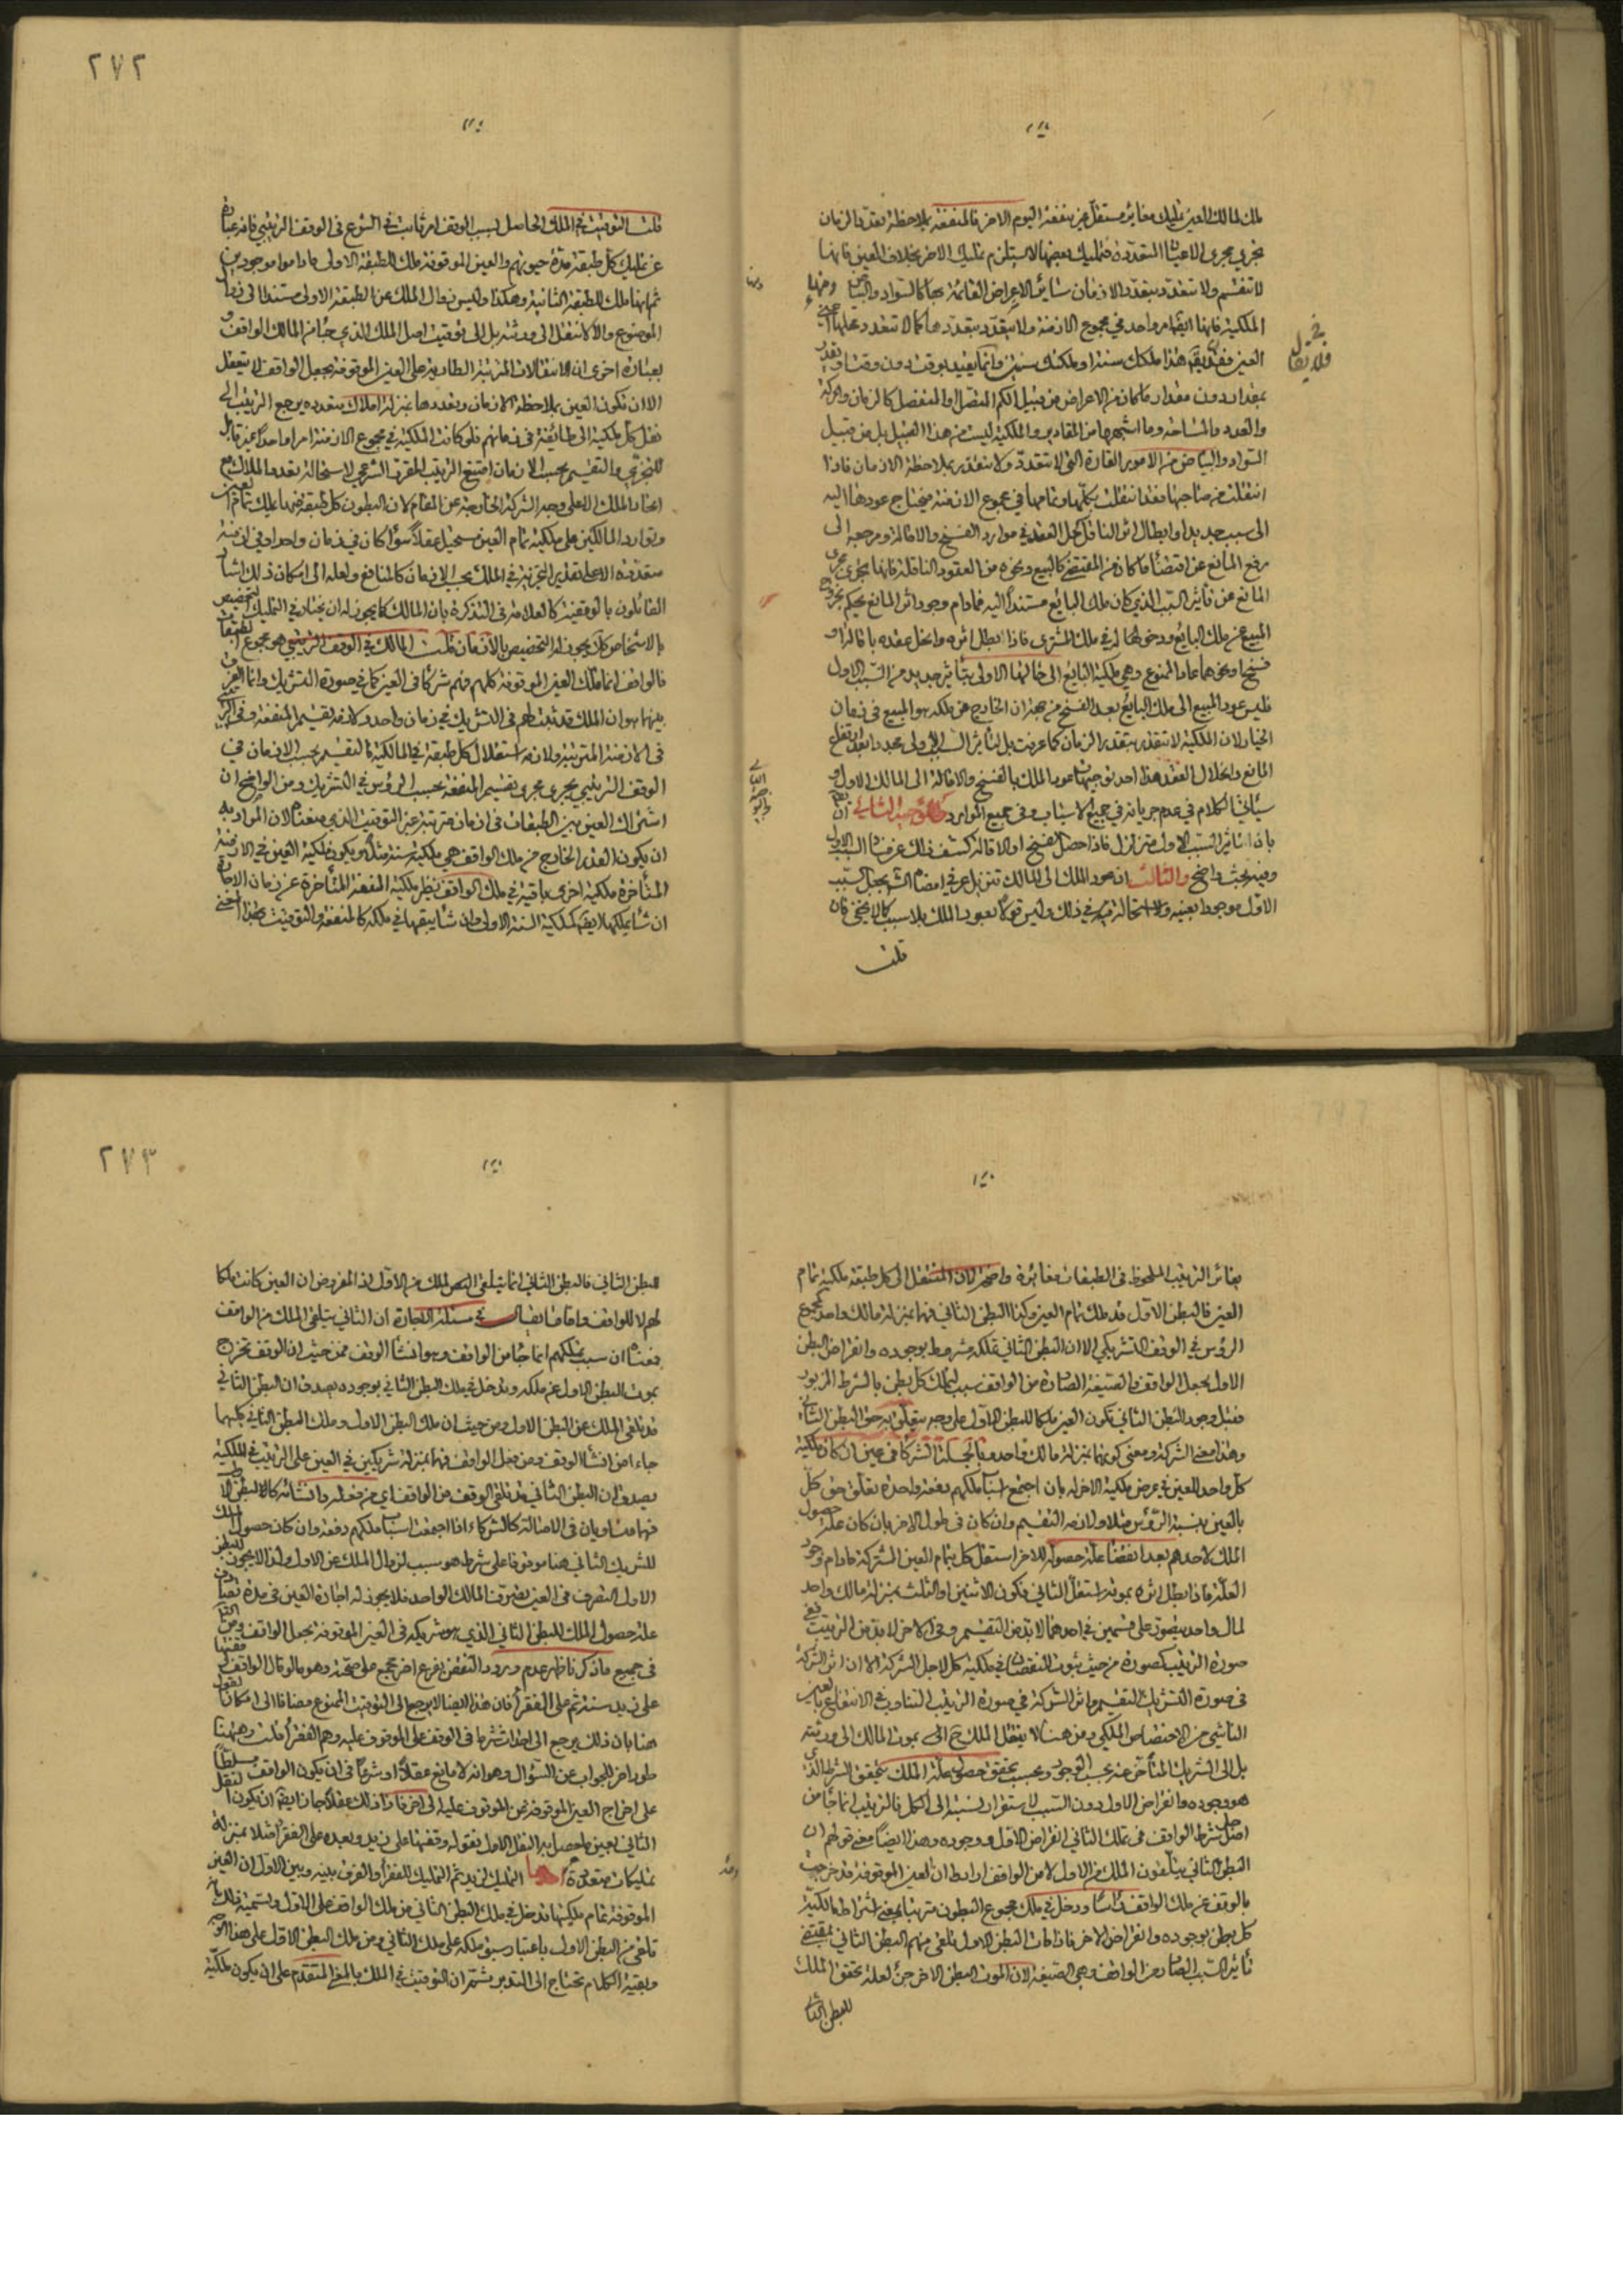 ٢٧٢
ملك لمالك العين تمليك مغاير مستقل عن منفعة اليوم الاخر فالمنفعة بملاحظة تعدد الزمان
تجري مجرى الاعيان المتعددة فتمليك بعضها لا يستلزم تمليك الاخر بخلاف العين فانها
لا تنقسم ولا تتعدد بتعدد الازمان كسائر الاعراض القائمة بها كالسواد والبياض ومنها
الملكية فانها ايضا امر واحد في مجموع الازمنة ولا يتعدد بتعددها كما لا تتعدد محلها اعني
العين فلا يقال هذا ملكك سنة او ملكك سنتين وانما يفيد بوقت دون وقت ويقدر
بمقدار دون مقدار ما كان من الاعراض من قبيل الكم المتصل او المنفصل كالزمان والحركة
والعدد والمساحة وما اشبهها من المقادير والملكية ليست من هذا القبيل بل من قبيل
السواد والبياض من الامور القارة التي لا تتعدد ولا تتقدر بملاحظة الازمان فاذا
انتقلت من صاحبها فقد انتقلت بكلها وتمامها في مجموع الازمنة فيحتاج عودها اليه
الى سبب جديد او ابطال اثر الناقل كحل العقد في موارد الفسخ والاقالة ومرجعه الى
رفع المانع عن اقتضاء ما كان من المقتضي كالبيع ونحوه من العقود الناقلة فانها تجري مجرى
المانع عن تاثير السبب الذي كان ملك البايع مستندا اليه فمادام وجود اثر المانع يحكم بخروج
المبيع عن ملك البايع ودخولها في ملك المشتري فاذا ابطل اثره وانحل عقده باقالة او
فسخ او نحوهما عاد الممنوع وهي ملكية البايع الى حالتها الاولى بتاثير جديد من السبب الاول
فليس عود المبيع الى ملك البايع بعد الفسخ من جهة ان الخارج عن ملكه هو المبيع في زمان
الخيار لان الملكية لا تتقدر بتقدر الزمان كما عرفت بل لتاثير السبب الاول مجددا بعد رفع
المانع وانحلال العقد هذا احد توجيهات عود الملك بالفسخ والاقالة الى المالك الاول و
سياتي الكلام في عدم جريانه في جميع الاسباب وفي جميع الموارد والتوجيه الثاني ان
بان تاثير السبب الاول متزلزل فاذا حصل الفسخ او الاقالة كشف ذلك عن فساد السبب الاول
وفيه بحث واضح والثالث ان عود الملك الى المالك تنزيل عرفي امضاه الشرع بجعل السبب
الاول موجودا بعينه ولا استحالة فيه في ذلك وليس قولا بعود الملك بلا سبب كما لا يخفى فان
قلت
قلت التوقيت في الملك الحاصل بسبب الوقف امر ثابت في الشرع في الوقف الترتيبي فانه عبارة
عن تمليك كل طبقة مدة حيوتهم والعين الموقوفة ملك للطبقة الاولى ما داموا موجودين
ثم انها ملك للطبقة الثانية وهكذا وليس زوال الملك عن الطبقة الاولى مستندا الى زوال
الموضوع والا لانتقل الى ورثته بل الى توقيت اصل الملك الذي جاء من المالك الواقف و
بعبارة اخرى ان الانتقالات المترتبة الطارية على العين الموقوفة بجعل الواقف لا يتعقل
الا ان تكون العين بملاحظة الازمان وتعددها بمنزلة املاك متعددة يرجع الترتيب الى
نقل كل ملكية الى طائفة في زمانهم فلو كانت الملكية في مجموع الازمنة امرا واحدا غير قابل
للتجزي والتقسيم بحسب الازمان امتنع الترتيب المقرر الشرعي لاستحالة تعدد الملاك مع
اتحاد الملك الا على وجه الشركة الخارجة عن المقام لان البطون كل طبقة منها يملك تمام العين
وتوارد المالكين على ملكية تمام العين مستحيل عقلا سواء كان في زمان واحد او في ازمنة
متعددة الا على تقدير التجزية في الملك بحسب الازمان كالمنافع ولعله الى امكان ذلك اشار
القائلون بالوقفية كالعلامة في التذكرة بان المالك كما يجوز له ان يختار في التمليك التخصيص
بالاشخاص كك يجوز له التخصيص بالازمان قلت المالك في الوقف الترتيبي هو مجموع الطبقات
فالواقف انما ملك العين الموقوفة كلهم فهم شركاء في العين كما في صورة التشريك وانما الفرق
بينهما هو ان الملك قد ثبت لهم في التشريك في زمان واحد ولازمه تقسيم المنفعة وفي الترتيب
في الازمنة المترتبة ولازمه استقلال كل طبقة في المالكية فالتقسيم بحسب الازمان في
الوقف الترتيبي يجري مجرى تقسيم المنفعة بحسب الرؤس في التشريك ومن الواضح ان
اشتراك العين بين الطبقات في ازمان مترتبة غير التوقيت الذي منعناه لان المراد به
ان يكون القدر الخارج من ملك الواقف هي ملكية سنة مثلا ويكون ملكية العين في الازمنة
المتاخرة ملكية اخرى باقية في ملك الواقف نظير ملكية المنفعة المتاخرة عن زمان الاجارة
ان شاء يملكها ايضا كملكية السنة الاولى وان شاء يبقيها في ملكه كالمنفعة والتوقيت بهذا المعنى
٢٧٣
يغاير الترتيب الملحوظ في الطبقات مغايرة واضحة لان المنتقل الى كل طبقة ملكية تمام
العين فالبطن الاول قد ملك تمام العين وكذا البطن الثاني فهما بمنزلة مالك واحد كمجموع
الرؤس في الوقف التشريكي الا ان البطن الثاني تملكه مشروط بوجوده وانقراض البطن
الاول بجعل الواقف فالصيغة الصادرة من الواقف سبب لتملك كل بطن بالشرط المزبور
فقبل وجود البطن الثاني تكون العين ملكا للبطن الاول على وجه يتعلق به حق البطن الثاني
وهذا معنى الشركة ومعنى كونهما بمنزلة مالك واحد فالجملة الشركاء في عين ان كان ملكية
كل واحد للعين في عرض ملكية الاخر له بان اجتمع اسباب ملكهم دفعة واحدة تعلق حق كل
بالعين بنسبة الرؤس مثلا ولازمه التقسيم وان كان في طول الاخر بان كان علة حصول
الملك لاحدهم بعد انقضاء علة حصوله للاخر استقل كل بتمام العين المشتركة ما دام وجود
العلة فاذا بطل اثره بموته استقل الثاني فكون الاثنين او الثلث بمنزلة مالك واحد
لمال واحد يتصور على قسمين في احدهما لا بد من التقسيم وفي الاخر لا بد من الترتيب ففي
صورة الترتيب كصورة من حيث ثبوت النقصان في ملكية كل لاجل الشركة الا ان اثر الشركة
في صورة التشريك التقسيم واثر الشركة في صورة الترتيب التناوب في الانتفاع بالعين
الناشي من الاختصاص الملكي ومن هنا لا ينتقل الملك ح الى بموت المالك الى ورثته
بل الى الشريك المتاخر عنه بحسب الوجود وبحسب تحقق حصول علة الملك بتحقق الشرط الذي
هو وجوده وانقراض الاول دون السبب لاستقرار نسبته الى الكل فالترتيب انما جاء من
اصل شرط الواقف في تملك الثاني انقراض الاول ووجوده وهذا ايضا معنى قولهم ان
البطن الثاني يتلقون الملك من الاول لا من الواقف ارادوا ان العين الموقوفة قد خرجت
بالوقف عن ملك الواقف راسا ودخل في ملك مجموع البطون مترتبا بمعنى اشتراط مالكية
كل بطن بوجوده وانقراض الاخر فاذا مات البطن الاول تلقى منهم البطن الثاني بمقتضى
تاثير السبب الصادر من الواقف وهي الصيغة لان الموت البطن الاخر جزء لعلة تحقق الملك
للبطن الثاني
للبطن الثاني فالبطن الثاني انما يتلقى الملك من الاول اذ المفروض ان العين كانت ملكا
لهم لا للواقف واما ما يقال في مسئلة الاجارة ان الثاني يتلقى الملك من الواقف
فمعناه ان سبب تملكهم انما جاء من الواقف وهو انشاء الوقف فمن حيث ان الوقف تخرج
بموت البطن الاول عن ملكه ويدخل في ملك البطن الثاني بوجوده يصدق ان البطن الثاني
قد تلقى الملك عن البطن الاول ومن حيث ان ملك البطن الاول وملك البطن الثاني كليهما
جاءا من انشاء الوقف ومن فعل الواقف فهما بمنزلة شريكين في العين على الترتيب في الملكية
يصدق ان البطن الثاني قد تلقى الوقف من الواقف اي من فعله وانشائه كالبطن الاول
فهما متساويان في الاصالة كالشركاء اذا اجتمعت اسباب ملكهم دفعة وان كان حصول الملك
للشريك الثاني هنا موقوفا على شرط هو سبب لزوال الملك عن الاول ولذا لا يجوز للبطن
الاول التصرف في العين تصرف المالك الواحد فلا يجوز له اجارة العين في مدة تصادف
علة حصول الملك للبطن الثاني الذي هو شريكه في العين الموقوفة بجعل الواقف ومن التامل
في جميع ما ذكرنا ظهر عدم ورود النقض بفرع اخر مجمع على صحته وهو ما لو قال الواقف وقفتها
على زيد سنة ثم على الفقراء فان هذا ايضا لا يرجع الى التوقيت الممنوع مضافا الى امكان القول
هنا بان ذلك يرجع الى احداث شرط في الوقف على الموقوف عليه وهم الفقراء قلت وهيهنا
طور اخر للجواب عن السؤال وهو انه لا مانع عقلا وشرعا في ان يكون الواقف مسلطا
على اخراج العين الموقوفة عن الموقوف عليه الى اخر فاذا ذلك عقلا جاز ايضا ان يكون النقل
الثاني بعين ما حصل به النقل الاول فقوله وقفتها على زيد وبعده على الفقراء مثلا بمنزلة
تمليكات متعددة احدها التمليك لزيد ثم التمليك للفقراء والفرق بينه وبين الاول ان العين
الموقوفة بتمام ملكيتها قد دخل في ملك البطن الثاني من ملك الواقف على الاول وتسمية ذلك بانه
تلقى من البطن الاول باعتبار سبق ملكه على ملك الثاني ومن ملك البطن الاول على هذا الوجه
وبقية الكلام تحتاج الى التدبر ثم ان التوقيت في الملك بالمعنى المتقدم على ان يكون ملكية